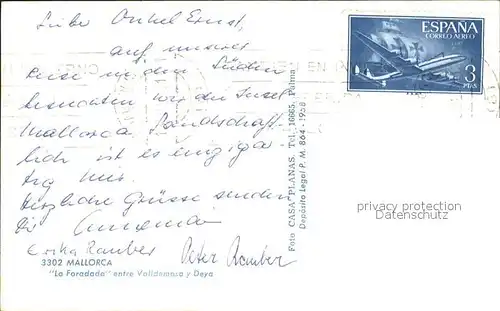 Liebe Onkel Ernst,
auf unserer
Reise in den Süden
besuchten wir die Insel
Mallorca Landschaft-
lich ist es einziga-
tig hier.
Herzliche Grüsse senden
Dir
Erika Rauber Peter Rauber
3302 MALLORCA
"La Foradada" entre Valldemosa y Deya
Foto CASA PLANAS. Tel. 16665. Palma
Depósito Legal P. M. 864 - 1958
ESPAÑA
CORREO AEREO
3
PTAS
privacy protection
Datenschutz